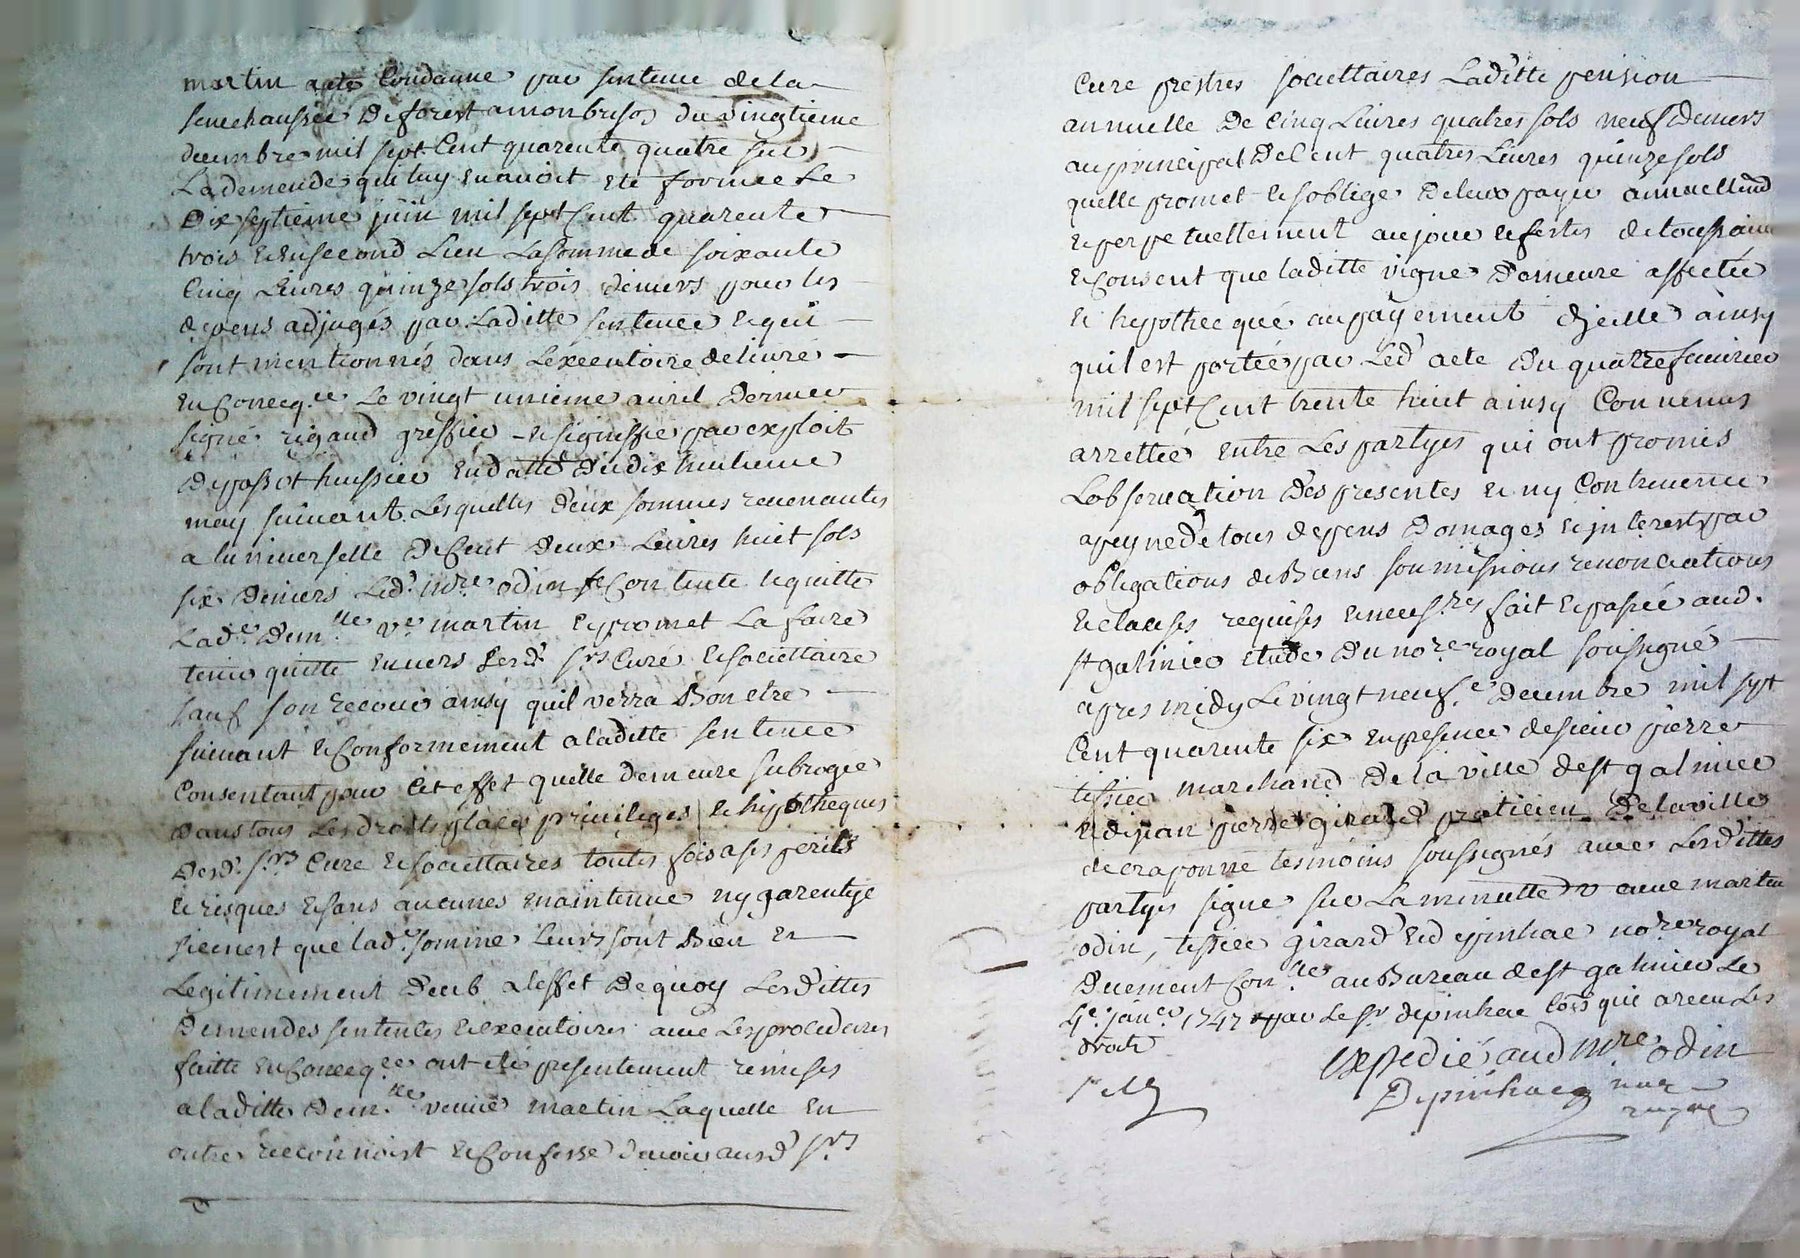 martin a ete Condanne par sentence de la
senechaussée de forest a monbrison du vingtieme
decembre mil sept Cent quarente quatre sur
La demende qui luy en avoit ete formée Le
Dix septieme juin mil sept Cent quarente
trois et en second Lieu La somme de soixante
Cinq Livres quinze sols trois deniers pour les
depens adjugés par Laditte sentence et qui
sont mentionnés dans L'executoire delivré
en Conecq.ce Le vingt unieme avril Dernier
signé rigaud greffier et signiffié par exploit
de huissier en datte du dix huitieme
may suivant. Lesquelles deux sommes revenantes
a luniverselle de Cent deux Livres huit sols
six deniers Led. m.re odin se Contente et quitte
Lad.e Dem.lle v.e martin et promet La faire
tenir quitte envers Lesd. s.rs Curé et societtaire
sauf son recour ainsy quil verra Bon etre
suivant et Conformement a laditte sentence
Consentant pour Cet effet quelle demeure subrogée
dans tous Les droits place privileges et hypotheques
desd. s.rs Cure et societtaires toutes fois a ses perils
et risques et sans aucunes maintenue ny garentye
si ce nest que lad.e somme Leurs sont Bien et
Legitimement deub a Leffet De quoy Lesdittes
Demendes sentences et executoires avec Les procedures
faitte en Conecq.ce ont eté presentement remises
a laditte Dem.lle veuve martin Laquelle en
outre reconnoist et Confesse devoir ausd. s.rs
Cure prestres societtaires Laditte pension
annuelle De Cinq Livres quatres sols neuf deniers
au principal De Cent quatres Livres quinze sols
quelle promet et soblige De leur payer annuellem.t
et perpetuellement au jour et festes de toussaint
et Consent que laditte vigne Demeure affectée
et hypothecqué au payement dicelle ainsy
quil est portée par Led. acte Du quatre fevrier
mil sept Cent trente huit ainsy Convenus
arrettée entre Les partyes qui ont promis
Lobservation Des presentes et ny Contrevenir
a peyne de tous depens Domages et interests par
obligations de Biens soumissions renonciations
et clauses requises et necess.res fait et passée aud.
st galmier etude Du no.re royal soussigné
apres midy Le vingt neuf.e Decembre mil sept
Cent quarente six en presence de sieur pierre
tissier marchand De la ville de st galmier
et de jean pierre girard praticien De la ville
de craponne tesmoins soussignés avec Lesdittes
partyes signe sur La minutte v cuve martin
odin, tissier girard et depinhac no.re royal
Duement Con.lle au Bureau de st galmier Le
4.e janv.er 1747 par Le s.r depinhac Coïs qui a recu Les
droits
Expedié aud m.re odin
Depinhac no.re
royal